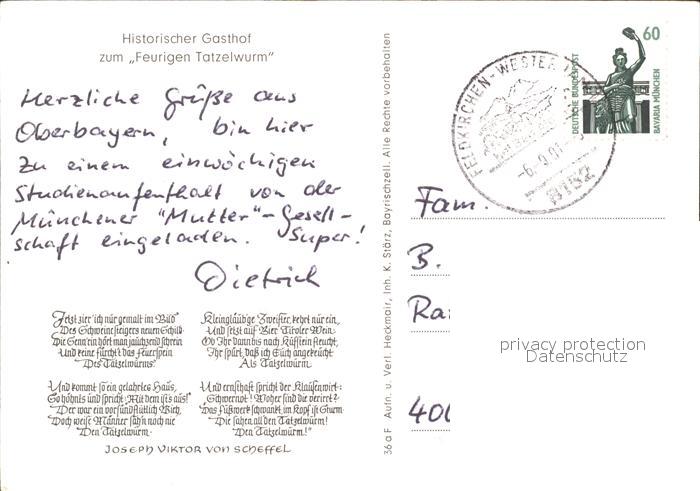 Historischer Gasthof
zum „Feurigen Tatzelwurm“
Herzliche Grüße aus
Oberbayern, bin hier
zu einem einwöchigen
Studienaufenthalt von der
Münchener "Mutter"-Gesell-
schaft eingeladen. Super!
Dietrich
Jetzt zier' ich nur gemalt im Bild
Des Schweinesteigers neuen Schild
Die Senn'rin hört man jauchzend schrein
Und keine fürcht't das Feuerspein
Des Tatzelwurms.
Und kommt so ein gelahrtes Haus,
So höhnts und spricht: „Mit dem ist's aus!"
Der war ein vorsündflutlich Vieh,
Doch weise Männer sah'n noch nie
Den Tatzelwurm.
Kleingläub'ge Zweifler, kehrt nur ein,
Und setzt auf Bier Tiroler Wein.
Ob Ihr dann bis nach Kufstein fleucht,
Ihr spürt, daß ich Euch angekeucht
Als Tatzelwurm.
Und ernsthaft spricht der Klausenwirt:
„Schwernot! Woher sind die verirrt?
Das Fußwerk schwankt, im Kopf ist Sturm
Die sahen all den Tatzelwurm!
Den Tatzelwurm!"
JOSEPH VIKTOR VON SCHEFFEL
36 a F Aufn. u. Verl. Heckmair, Inh. K. Störz, Bayrischzell. Alle Rechte vorbehalten
FELDKIRCHEN-WESTER
-6.9.9
8152
60
DEUTSCHE BUNDESPOST
BAVARIA MÜNCHEN
Fam.
B.
Ra
400
privacy protection
Datenschutz